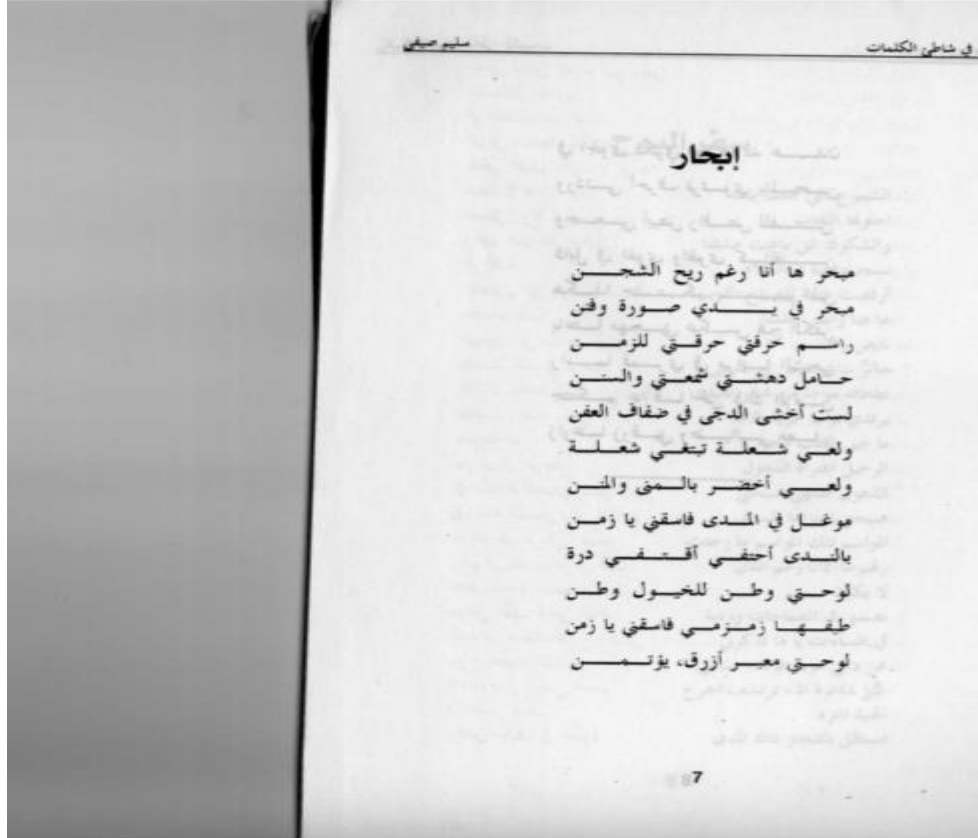 في شاطئ الكلمات
سليم صيفي
إبحار
مبحر ها أنا رغم ريح الشجن
مبحر في يدي صورة وفنن
راسم حرقتي حرقتي للزمن
حامل دهشتي شمعتي والسنن
لست أخشى الدجى في ضفاف العفن
ولعي شعلة تبتغي شعلة
ولعي أخضر بالمنى والمنن
موغل في المدى فاسقني يا زمن
بالندى أحتفي أقتفي درة
لوحتي وطن للخيول وطن
طيفها زمزمي فاسقني يا زمن
لوحتي معبر أزرق، يؤتمن
7